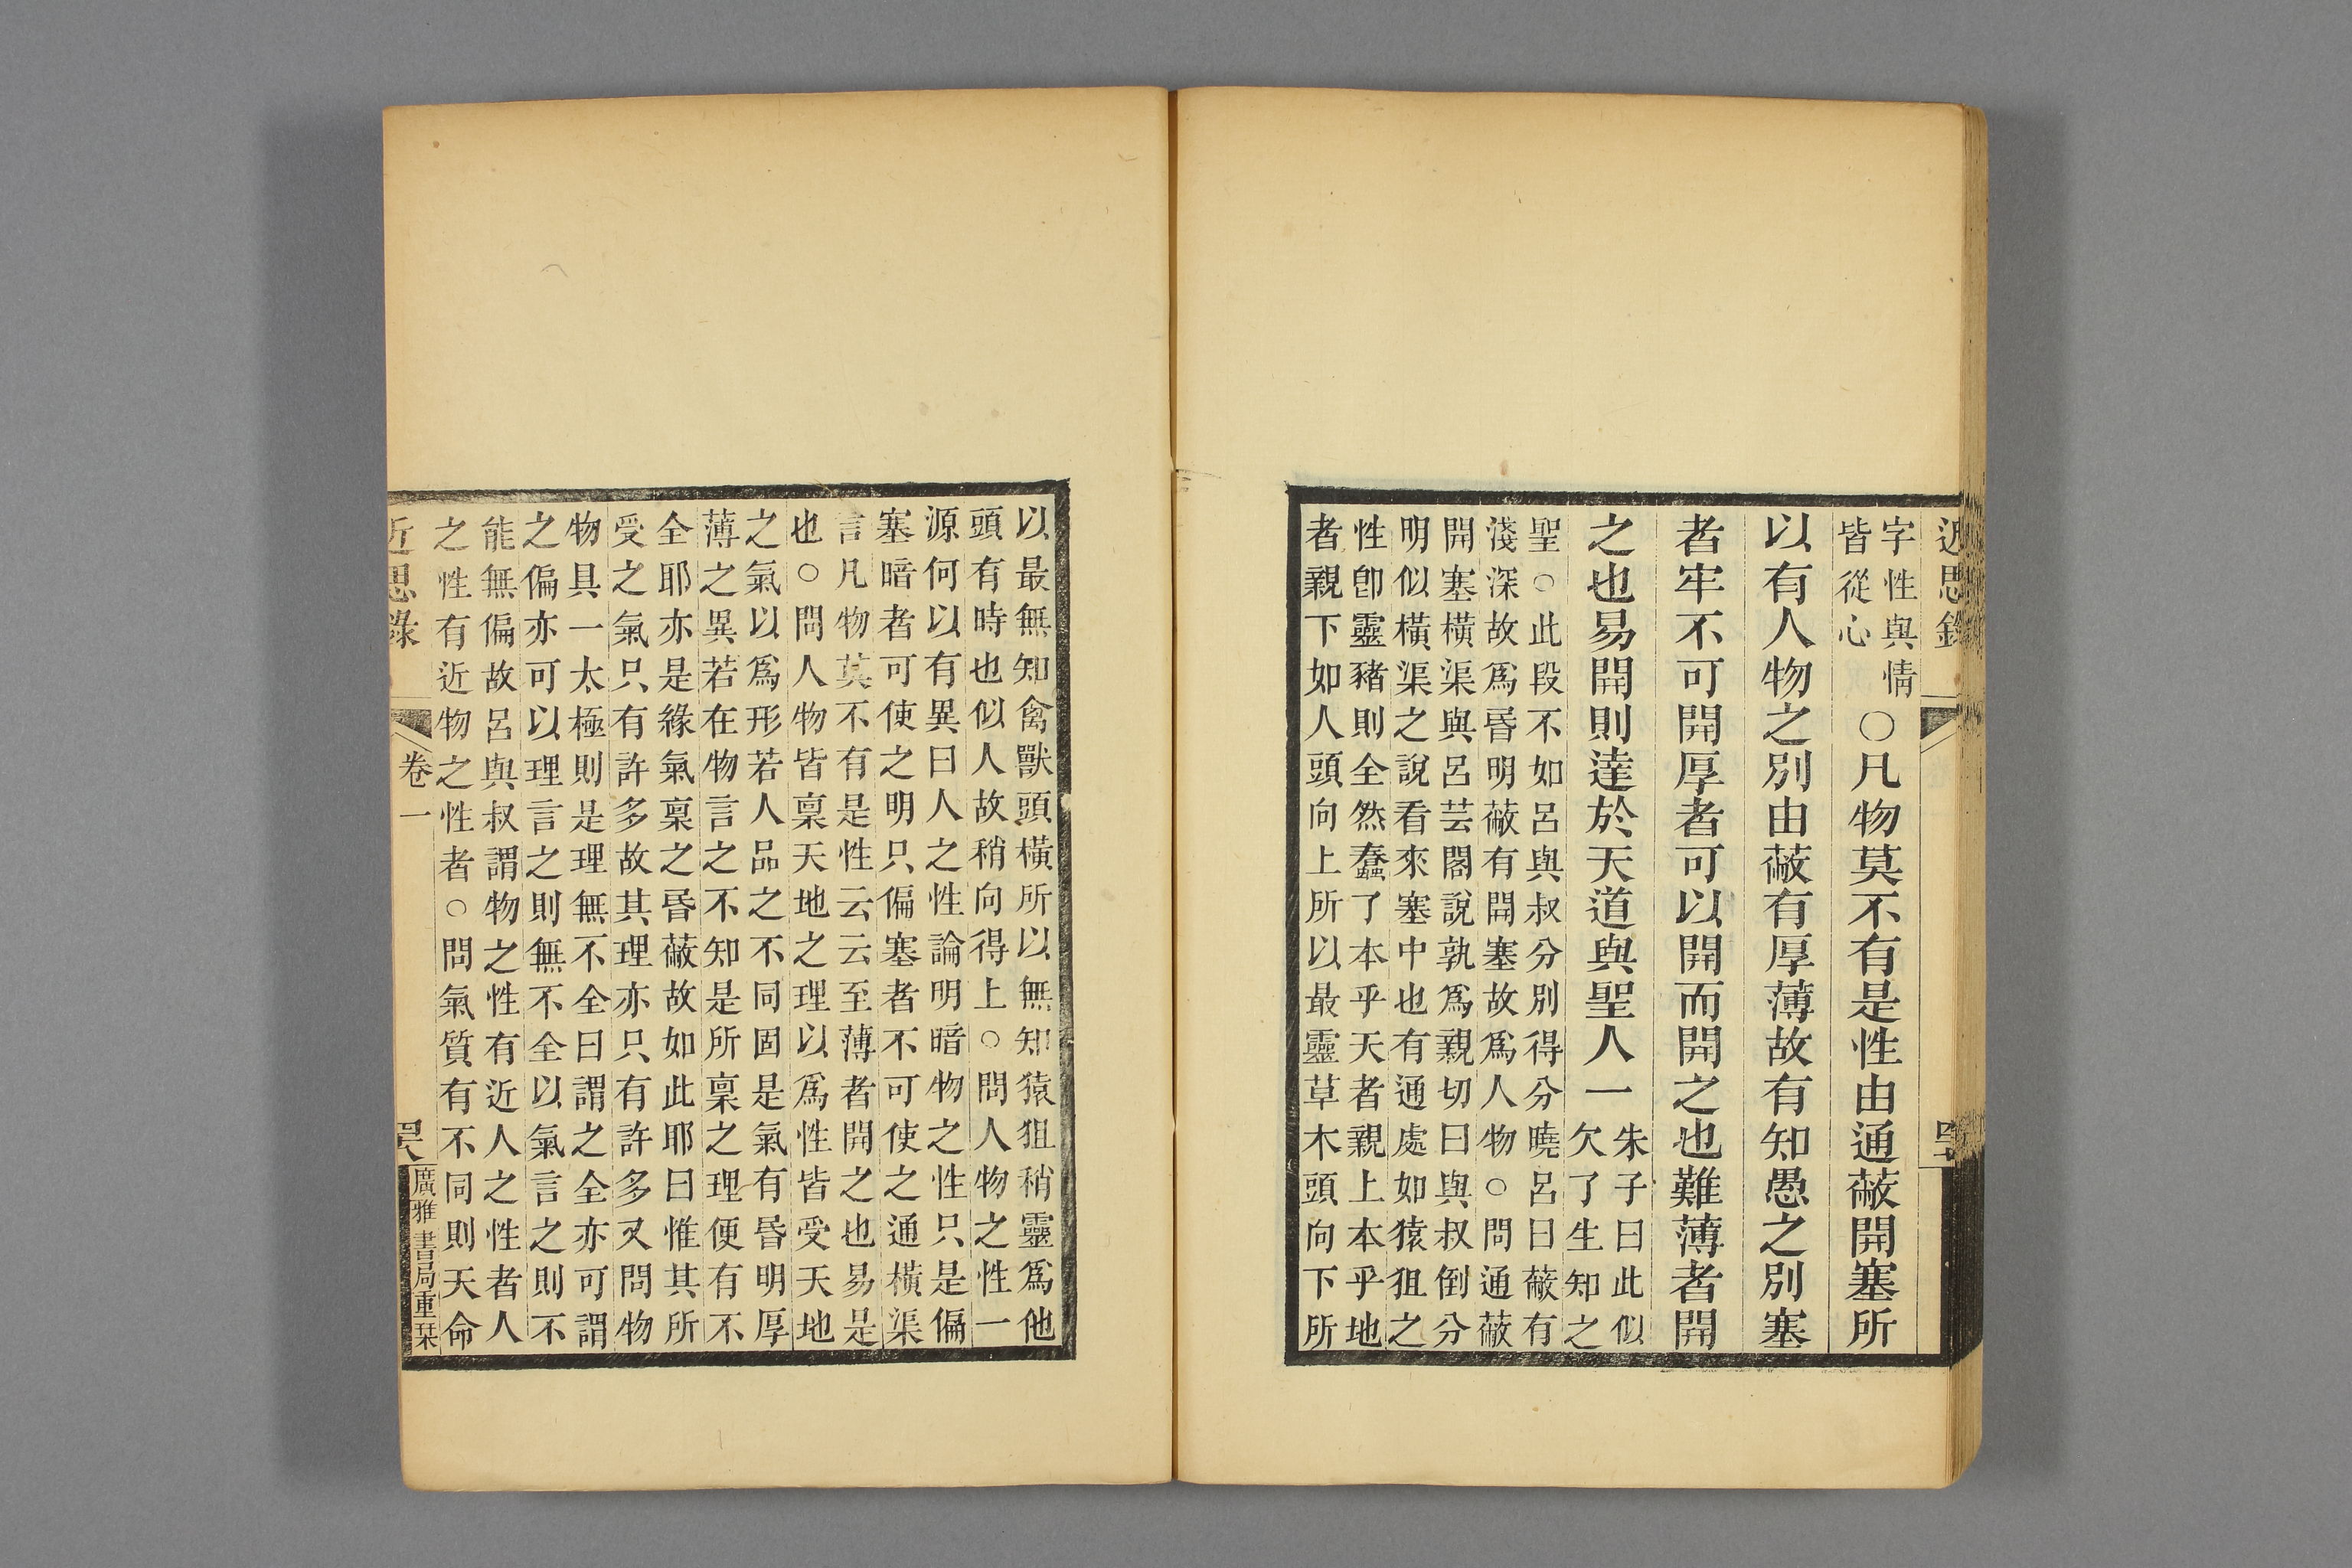 近思錄
字性與情
皆從心
○凡物莫不有是性由通蔽開塞所
以有人物之別由蔽有厚薄故有知愚之別塞
者牢不可開厚者可以開而開之也難薄者開
之也易開則達於天道與聖人一
朱子曰此似
欠了生知之
聖○此段不如呂與叔分別得分曉呂曰蔽有
淺深故爲昬明蔽有開塞故爲人物○問通蔽
開塞橫渠與呂芸閣說孰爲親切曰與叔倒分
明似橫渠之說看來塞中也有通處如猿狙之
性卽靈豬則全然蠢了本乎天者親上本乎地
者親下如人頭向上所以最靈草木頭向下所
以最無知禽獸頭橫所以無知猿狙稍靈爲他
頭有時也似人故稍向得上○問人物之性一
源何以有異曰人之性論明暗物之性只是偏
塞暗者可使之明只偏塞者不可使之通橫渠
言凡物莫不有是性云云至薄者開之也易是
也○問人物皆稟天地之理以爲性皆受天地
之氣以爲形若人品之不同固是氣有昬明厚
薄之異若在物言之不知是所稟之理便有不
全耶亦是緣氣稟之昬蔽故如此耶曰惟其所
受之氣只有許多故其理亦只有許多又問物
物具一太極則是理無不全曰謂之全亦可謂
之偏亦可以理言之則無不全以氣言之則不
能無偏故呂與叔謂物之性有近人之性者人
之性有近物之性者○問氣質有不同則天命
近思錄
卷一
廣雅書局重栞